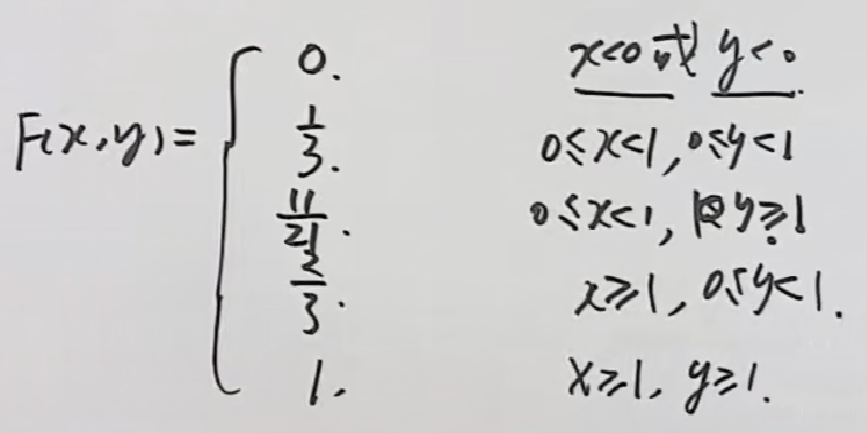 F(x,y)=
0. x<0或y<0.
1/3. 0≤x<1,0≤y<1
11/21. 0≤x<1, y≥1
2/3. x≥1, 0≤y<1.
1. x≥1, y≥1.